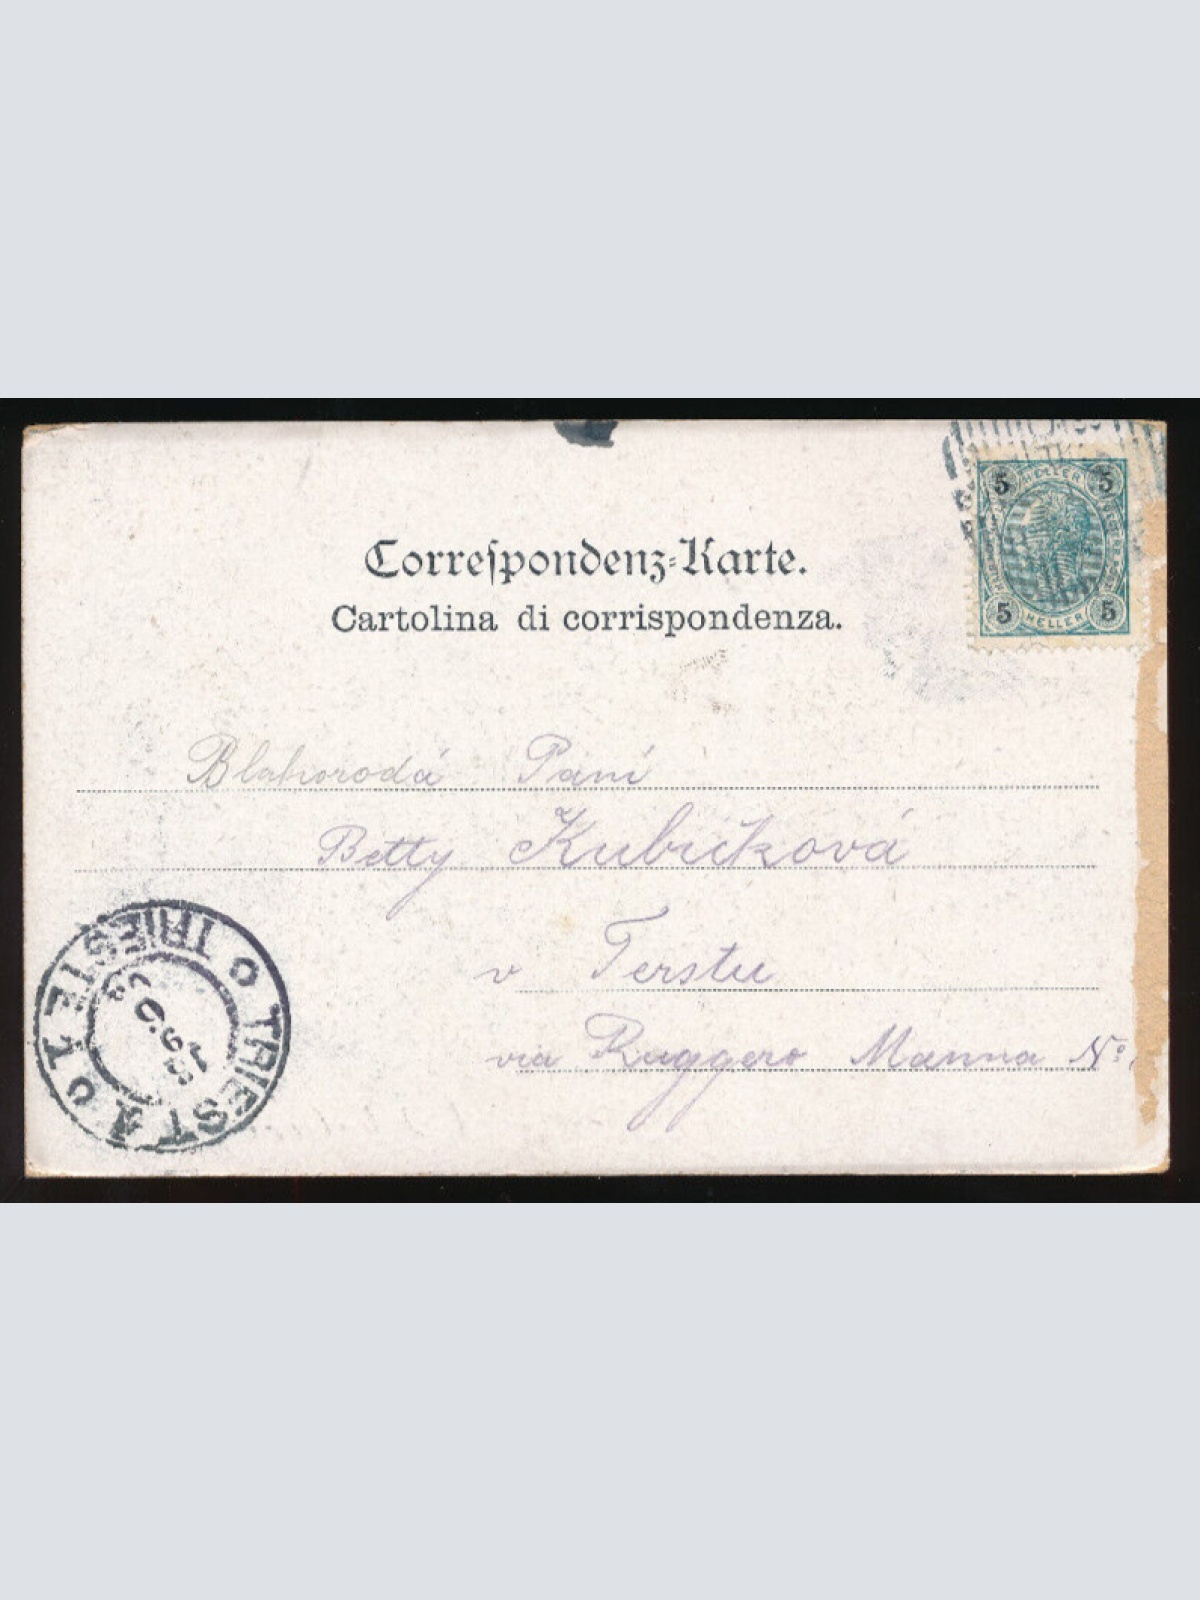 Correſpondenz-Karte.
Cartolina di corrispondenza.
5 HELLER 5
5 HELLER 5
Blahorodá Paní
Betty Kubíčková
v Terstu
via Ruggero Manna No.
TRIEST 1 TRIESTE